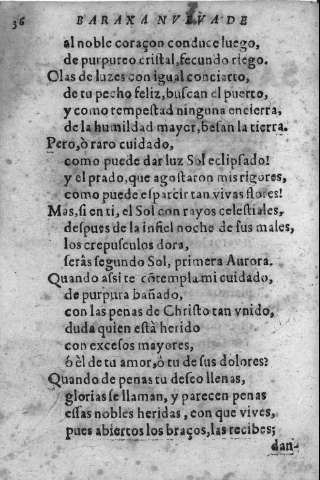 36 BARAXA NVEVA DE
al noble coraçon conduce luego,
de purpureo cristal, fecundo riego.
Olas de luzes con igual concierto,
de tu pecho feliz, buscan el puerto,
y como tempestad ninguna encierra,
de la humildad mayor, besan la tierra.
Pero, ò raro cuidado,
como puede dar luz Sol eclipsado!
y el prado, que agostaron mis rigores,
como puede esparcir tan vivas flores!
Mas, si en ti, el Sol con rayos celestiales,
despues de la infiel noche de sus males,
los crepusculos dora,
seràs segundo Sol, primera Aurora.
Quando assi te cõtempla mi cuidado,
de purpura bañado,
con las penas de Christo tan vnido,
duda quien està herido
con excesos mayores,
ò èl de tu amor, ò tu de sus dolores?
Quando de penas tu deseo llenas,
glorias se llaman, y parecen penas
essas nobles heridas, con que vives,
pues abiertos los braços, las recibes;
dan-